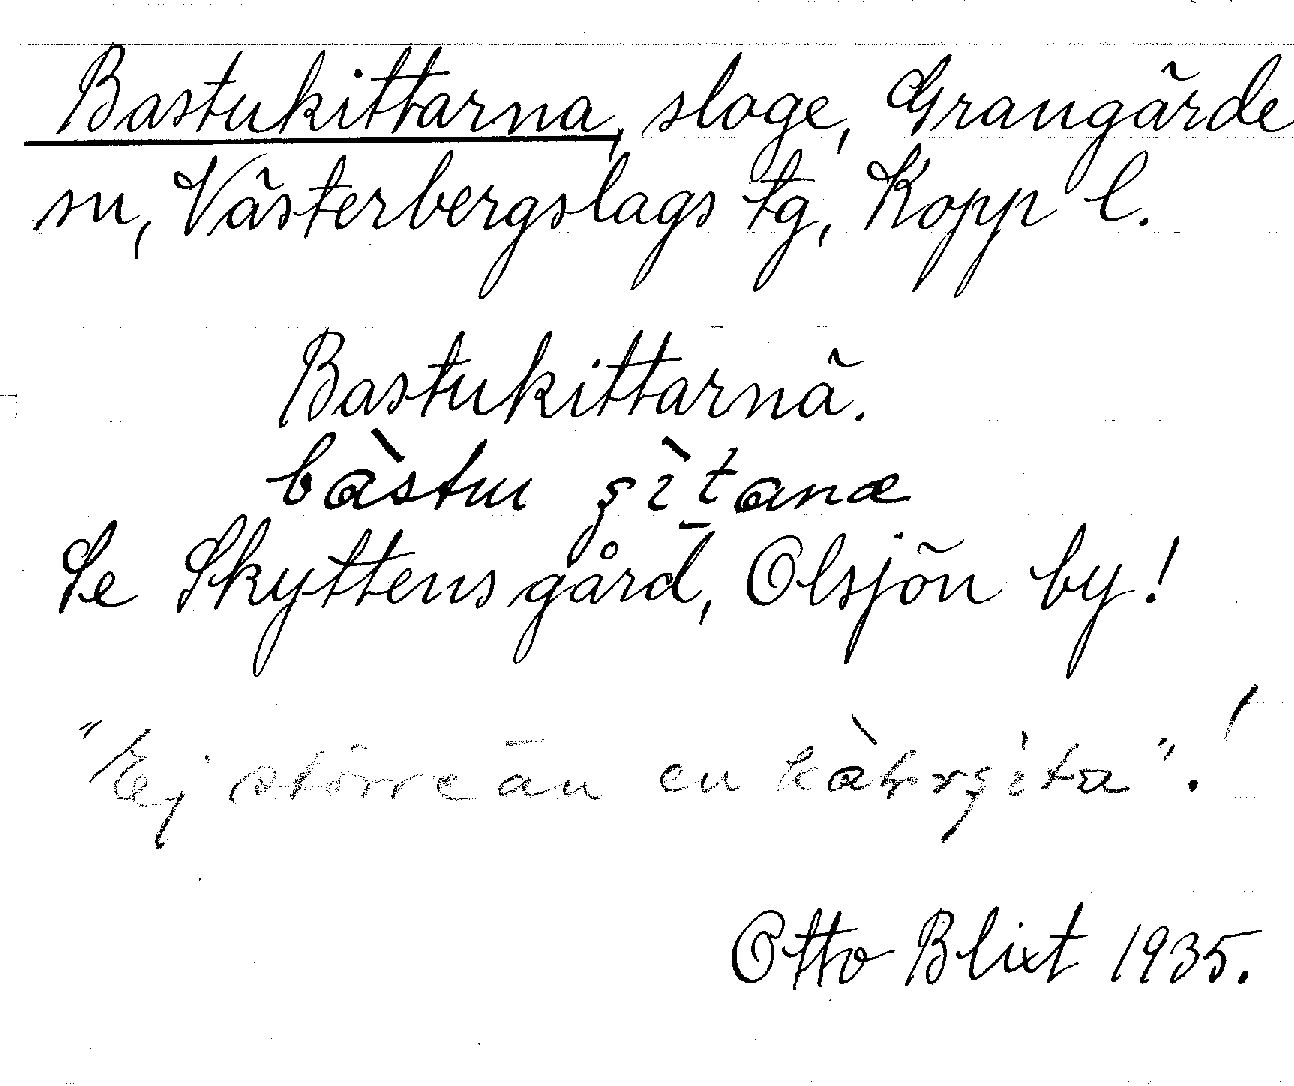 Bastukittarna, sloge, Grangärde
sn, Västerbergslags tg, Kopp l.
Bastukittarnä.
bàstu gìtanæ
Se Skyttensgård, Olsjön by!
"Ej större än en".!
Otto Blixt 1935.